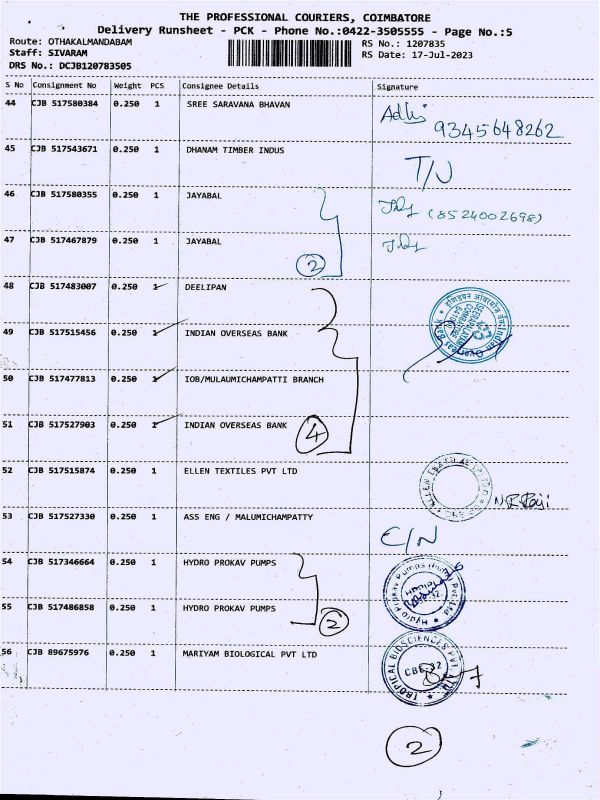 THE PROFESSIONAL COURIERS, COIMBATORE
Delivery Runsheet - PCK - Phone No.:0422-3505555 - Page No.:5
Route: OTHAKALMANDABAM RS No.: 1207835
Staff: SIVARAM RS Date: 17-Jul-2023
DRS No.: DCJB120783505
S No Consignment No Weight PCS Consignee Details Signature
44 CJB 517580384 0.250 1 SREE SARAVANA BHAVAN Adhi
9345648262
45 CJB 517543671 0.250 1 DHANAM TIMBER INDUS T/N
46 CJB 517580355 0.250 1 JAYABAL (8524002698)
47 CJB 517467879 0.250 1 JAYABAL
2
48 CJB 517483007 0.250 1 DEELIPAN
49 CJB 517515456 0.250 1 INDIAN OVERSEAS BANK
50 CJB 517477813 0.250 1 IOB/MULAUMICHAMPATTI BRANCH
51 CJB 517527903 0.250 1 INDIAN OVERSEAS BANK 4
52 CJB 517515874 0.250 1 ELLEN TEXTILES PVT LTD
53 CJB 517527330 0.250 1 ASS ENG / MALUMICHAMPATTY C/N
54 CJB 517346664 0.250 1 HYDRO PROKAV PUMPS Hydro Prokav Pumps (India) Pvt. Ltd
55 CJB 517486858 0.250 1 HYDRO PROKAV PUMPS 2
56 CJB 89675976 0.250 1 MARIYAM BIOLOGICAL PVT LTD TROPICAL BIOSCIENCES PVT. LTD
CBE-32
2